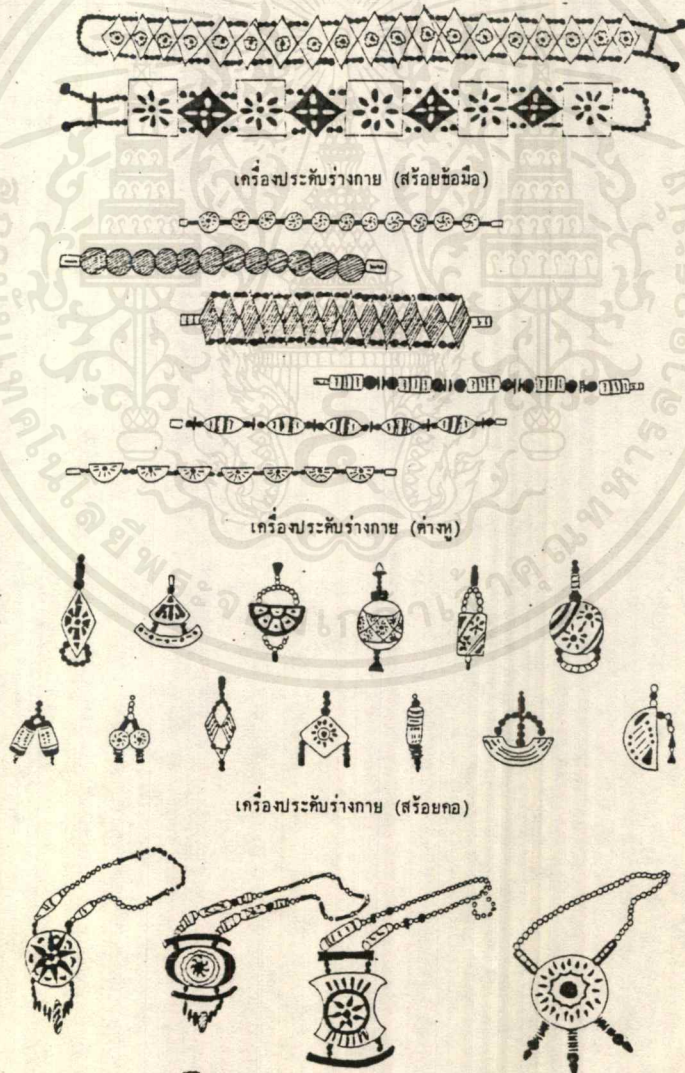 เครื่องประดับร่างกาย (สร้อยข้อมือ)
เครื่องประดับร่างกาย (ต่างหู)
เครื่องประดับร่างกาย (สร้อยคอ)